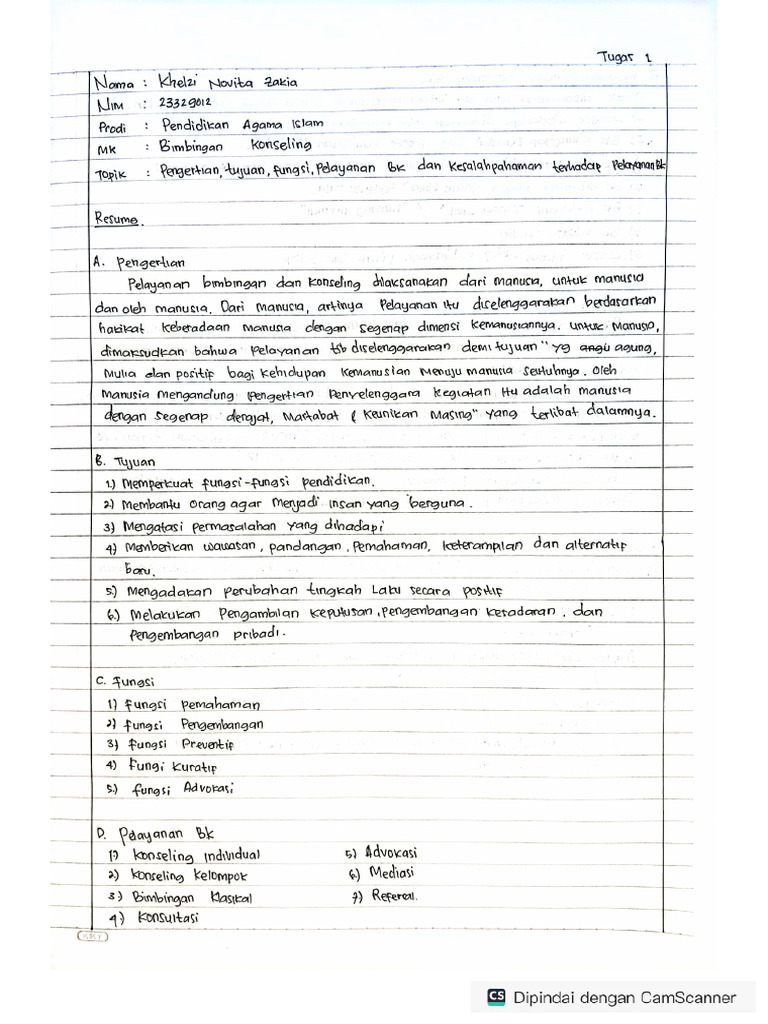 Tugas 1
Nama : Khelzi Novita Zakia
NIM : 23329012
Prodi : Pendidikan Agama Islam
MK : Bimbingan Konseling
Topik : Pengertian, tujuan, fungsi, Pelayanan BK dan Kesalahpahaman terhadap Pelayanan BK
Resume.
A. Pengertian
Pelayanan bimbingan dan konseling dilaksanakan dari manusia, untuk manusia
dan oleh manusia. Dari manusia, artinya Pelayanan itu diselenggarakan berdasarkan
hakikat keberadaan manusia dengan segenap dimensi kemanusiannya. Untuk Manusia,
dimaksudkan bahwa pelayanan tsb diselenggarakan demi tujuan" yg agung,
Mulia dan positif bagi kehidupan kemanusian menuju manusia seutuhnya. Oleh
Manusia mengandung pengertian Penyelenggara kegiatan itu adalah manusia
dengan segenap derajat, Martabat & keunikan Masing" yang terlibat dalamnya.
B. Tujuan
1) Memperkuat fungsi-fungsi pendidikan.
2) Membantu orang agar Menjadi insan yang berguna.
3) Mengatasi permasalahan yang dihadapi
4) Memberikan wawasan, pandangan, Pemahaman, keterampilan dan alternatif
baru.
5.) Mengadakan perubahan tingkah Laku secara positif
6.) Melakukan Pengambilan keputusan, pengembangan kesadaran, dan
Pengembangan pribadi.
C. Fungsi
1) Fungsi pemahaman
2) Fungsi Pengembangan
3) Fungsi Preventif
4) Fungi Kuratif
5.) Fungsi Advokasi
D. Pelayanan Bk
1) Konseling Individual 5) Advokasi
2) Konseling Kelompok 6.) Mediasi
3) Bimbingan Klasikal 7) Refereal.
4) Konsultasi
CS Dipindai dengan CamScanner